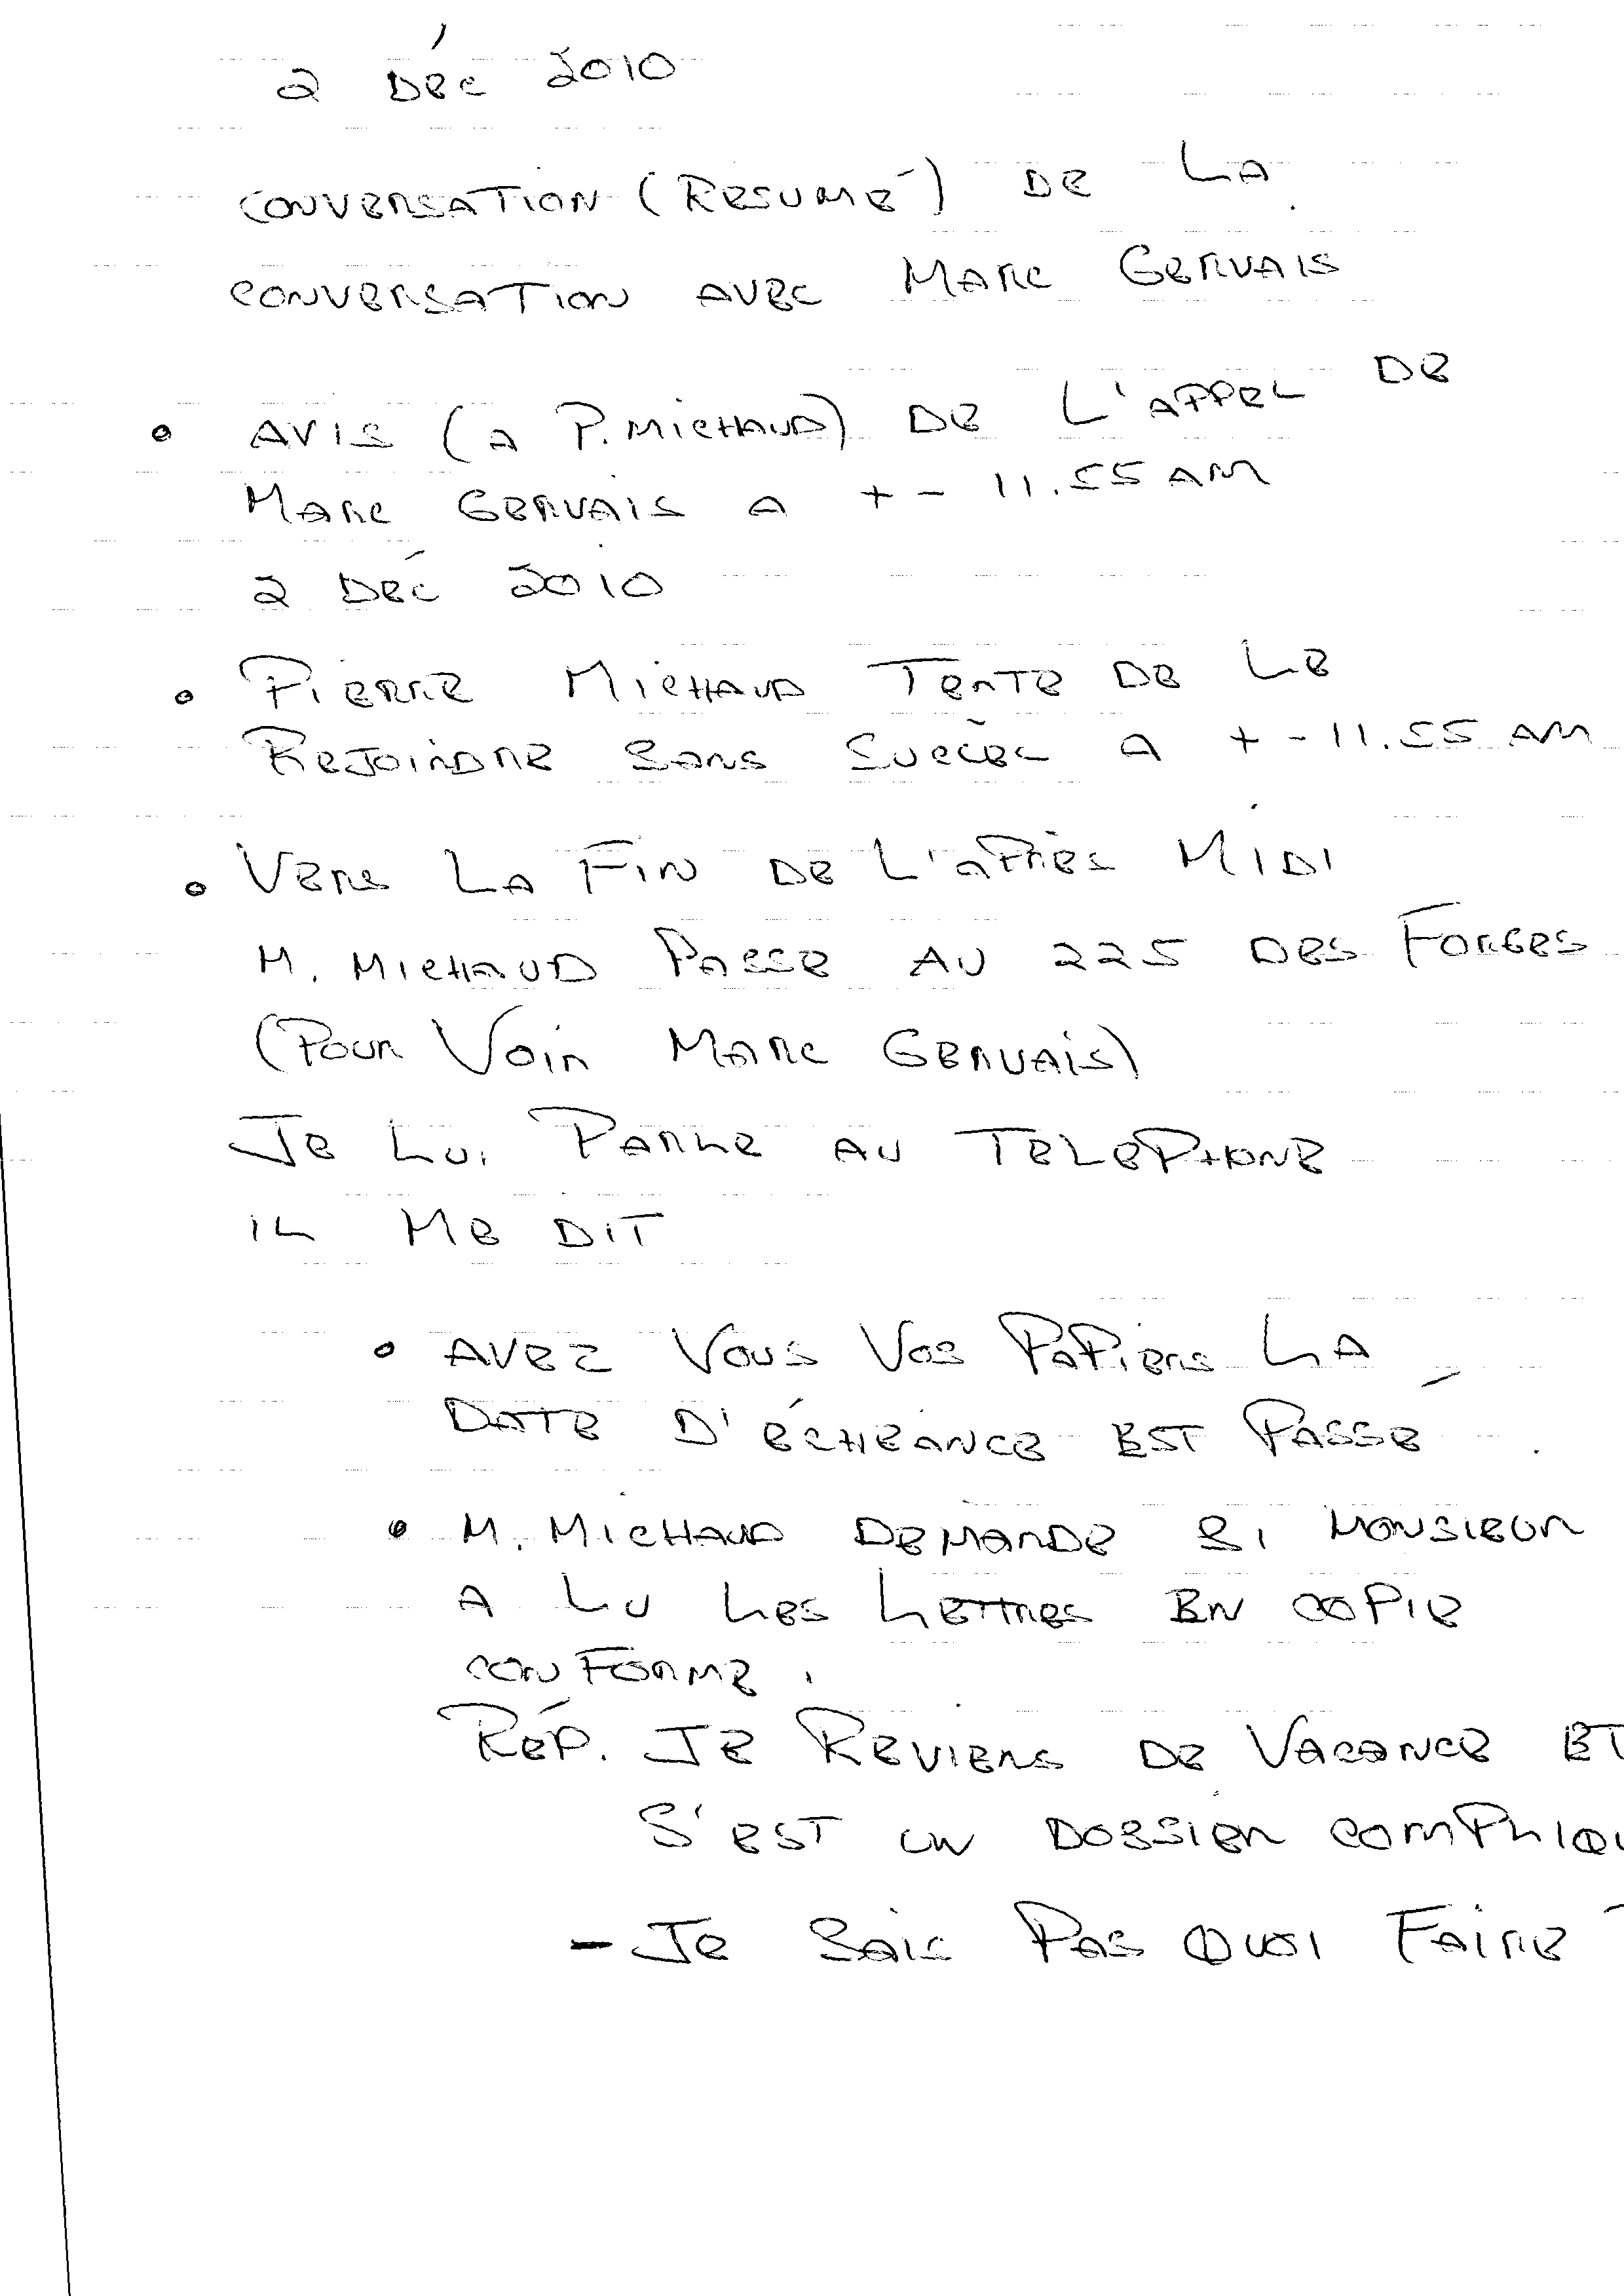 2 DÉC 2010
CONVERSATION (RESUMÉ) DE LA
CONVERSATION AVEC MARC GERVAIS
• AVIS (A P. MICHAUD) DE L'APPEL DE
MARC GERVAIS A + - 11.55 AM
2 DÉC 2010
• PIERRE MICHAUD TENTE DE LE
REJOINDRE SANS SUCCÈS A + - 11.55 AM
• VERS LA FIN DE L'APRÈS MIDI
M. MICHAUD PASSE AU 225 DES FORGES
(POUR VOIR MARC GERVAIS)
JE LUI PARLE AU TELEPHONE
IL ME DIT
• AVEZ VOUS VOS PAPIERS LA
DATE D'ÉCHEANCE EST PASSÉ
• M. MICHAUD DEMANDE SI MONSIEUR
A LU LES LETTRES EN COPIE
CONFORME.
RÉP. JE REVIENS DE VACANCE ET
S'EST UN DOSSIER COMPLIQU
- JE SAIS PAS QUOI FAIRE